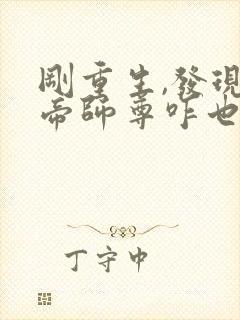 剛重生,發現
帝師尊咋也
丁守中